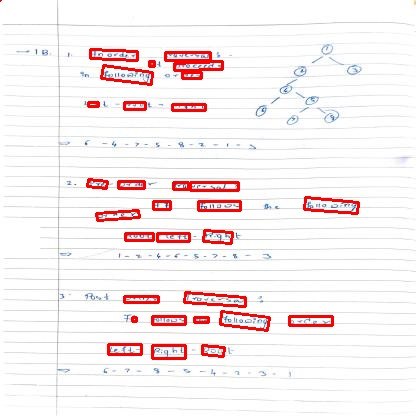 → 1B. 1. Inorder traversal :-
It proceed
in following order
left - root - right
⇒ 6 - 4 - 7 - 5 - 8 - 2 - 1 - 3
2. Pre order traversal :
It follows the following
order
root left - right
⇒ 1 - 2 - 4 - 6 - 5 - 7 - 8 - 3
3. Post order traversal :
It follows following order
left - right - root
⇒ 6 - 7 - 8 - 5 - 4 - 2 - 3 - 1